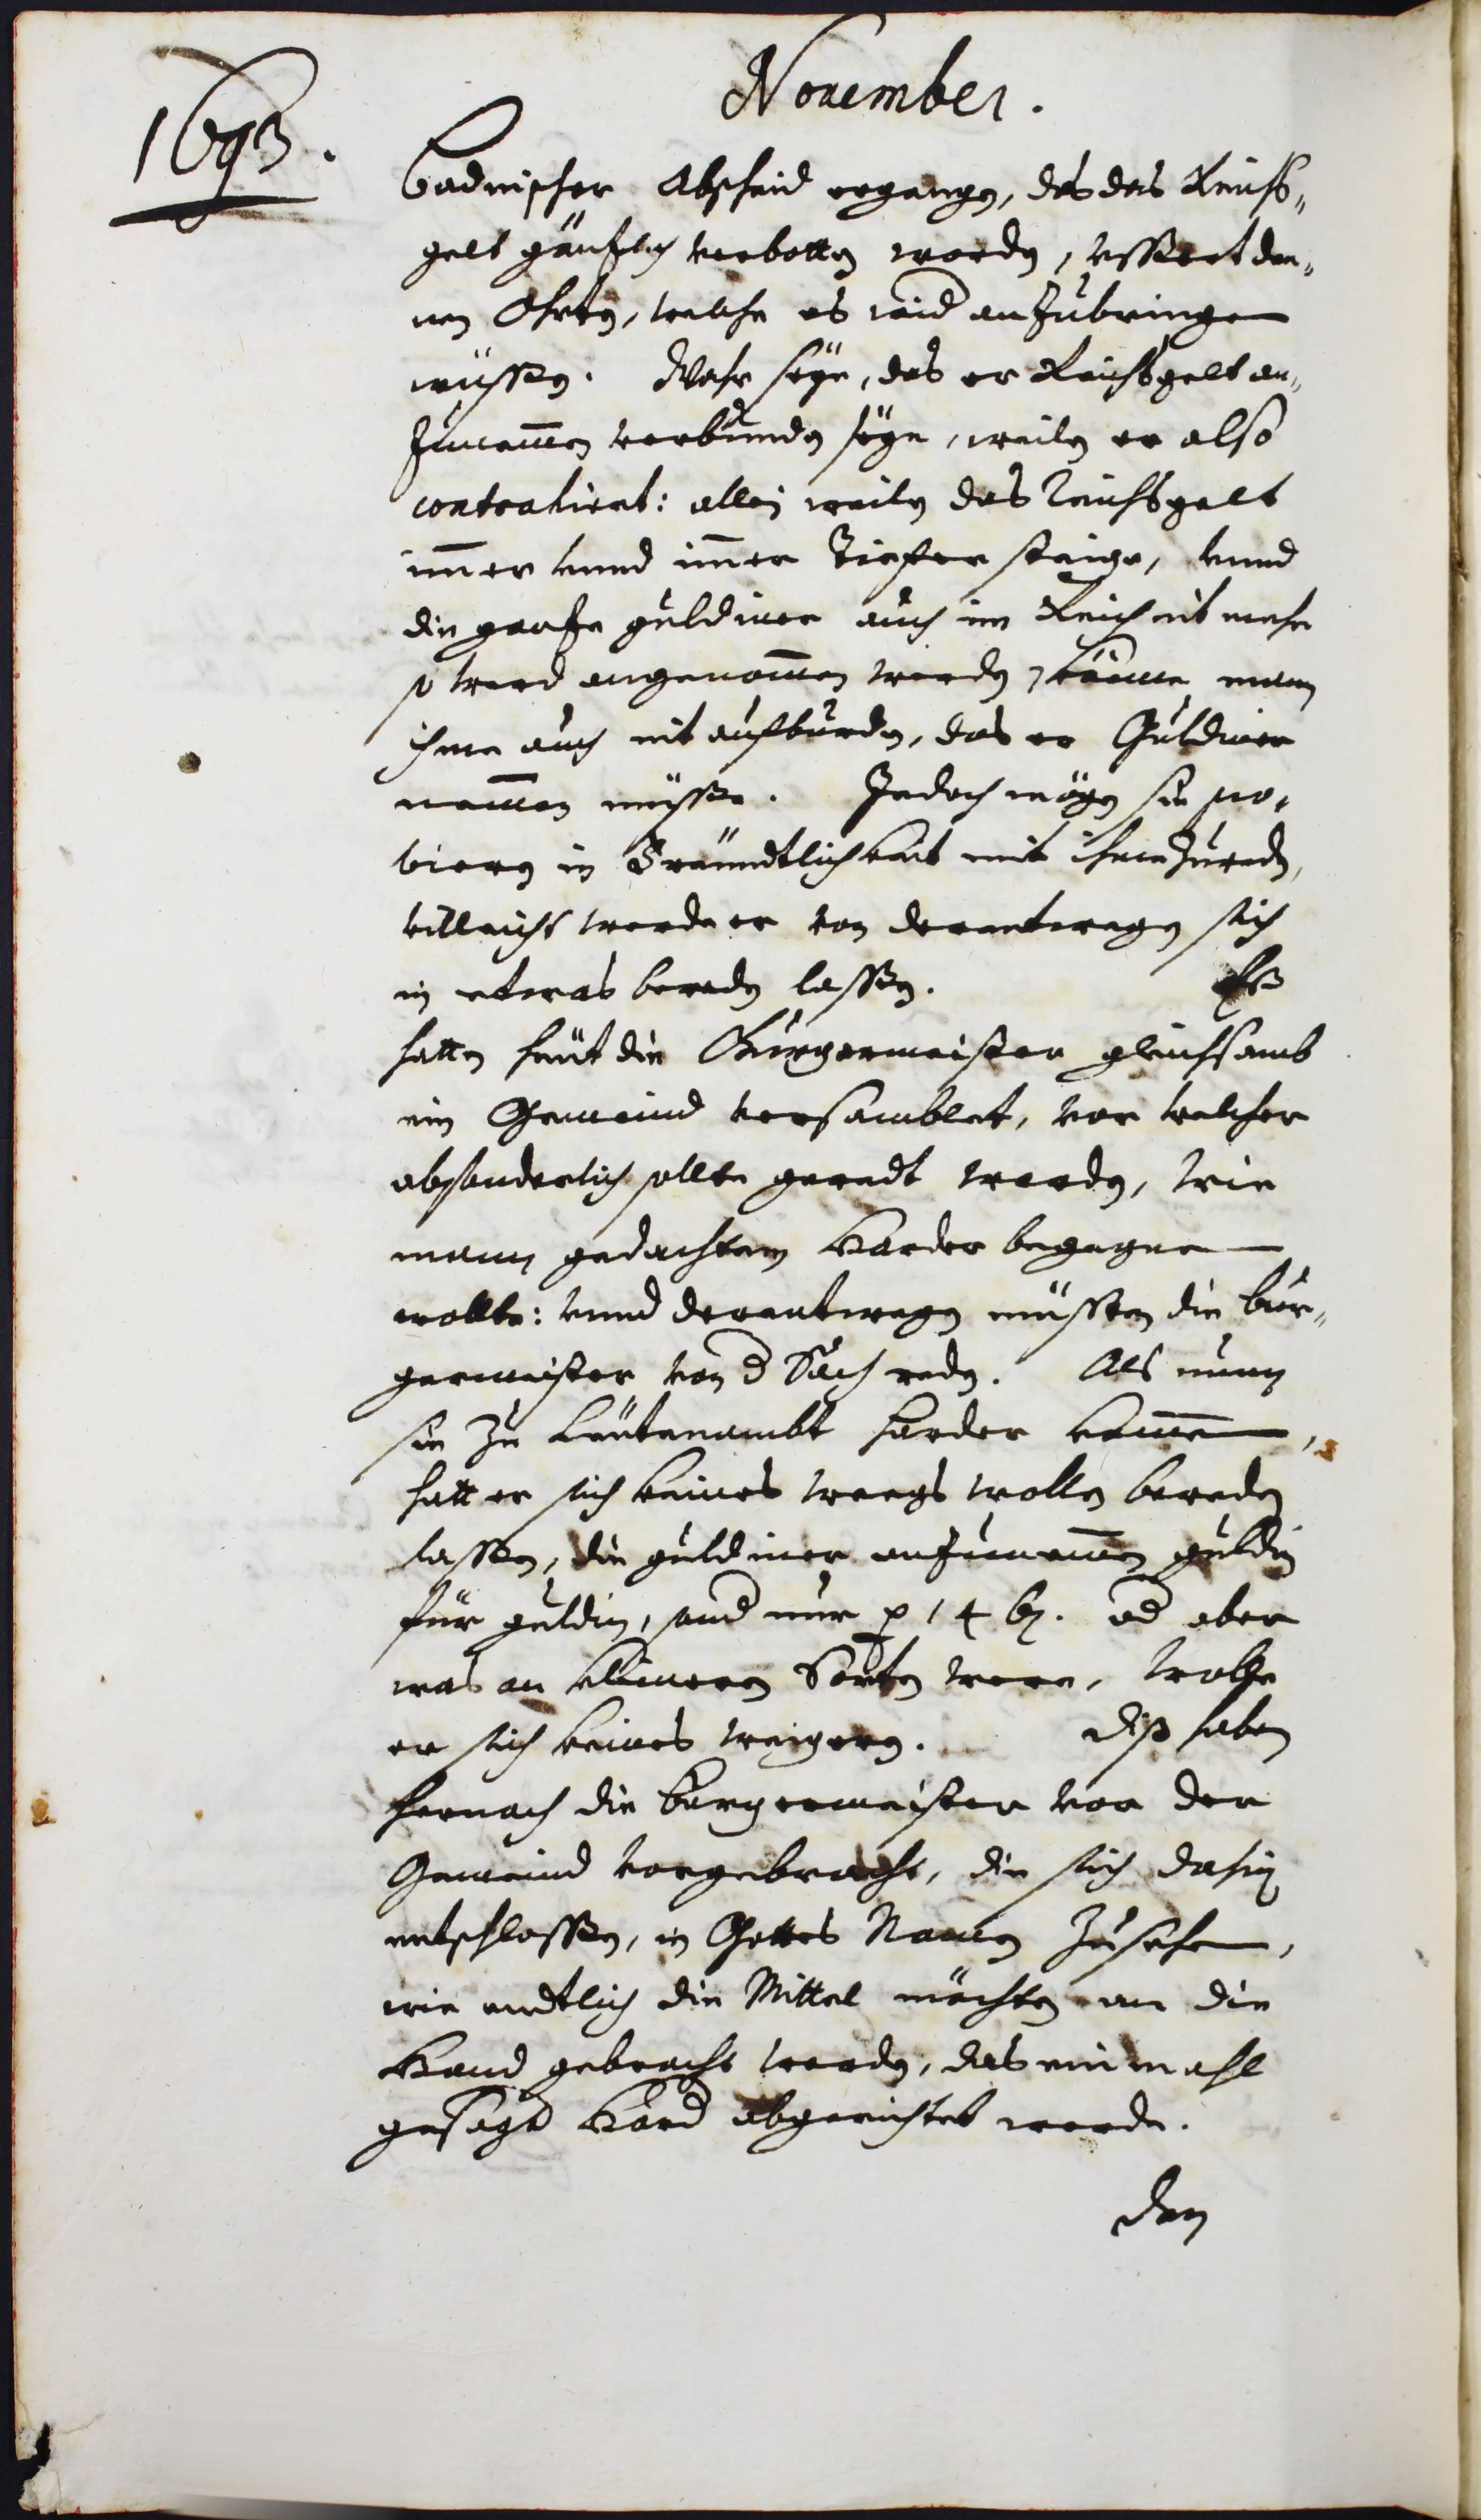 November.
1693.
Badnischer Abscheid ergangen, das das Reichs„
gelt gäntzlich verbotten worden, vssert den„
nen Ohrten, welche es wid anzubringen
wüssen. Wahr seye, das er Reichsgelt an„
zunemmen verbunden seye, weilen er also
contrahiert: allein weilen das Reichsgelt
immer vnnd immer tieffer steige, vnnd
die gantze guldiner auch im Reich nit mehr
so werd angenommen werden, könne mann
ihme auch nit aufbürden, das er Guldiner
nemmen müsse. Jedoch mögen sie pro„
bieren in Fründtlichkeit mit ihme zureden,
villeicht werde er von derentwegen sich
in etwas bereden lassen. Es
hatten heüt die Burgermeister gleichsamb
ein Gemeind versamblet, vor welcher
absonderlich sollte geredt werden, wie
mann gedachtem Harder begegnen
wollte: vnnd derentwegen müssten die bur„
germeister von d Sach reden. Als nunn
sie zu Leütenambt Harder kommen,
hatt er sich keines weegs wollen bereden
lassen, die guldiner anzunemmen guldin
für guldin, sond nur p 14 bz. od aber
was an kleineren Sorten were, wolle
er sich keines weigeren. Diß haben
hernach die burgermeister vor der
Gemeind vorgebracht, die sich dahin
entschlossen, in Gottes Namen zusehen,
wie endtlich die Mittel möchten an die
Hand gebracht werden, das einmahl
gesagt Hard abgerichtet werde.
Den